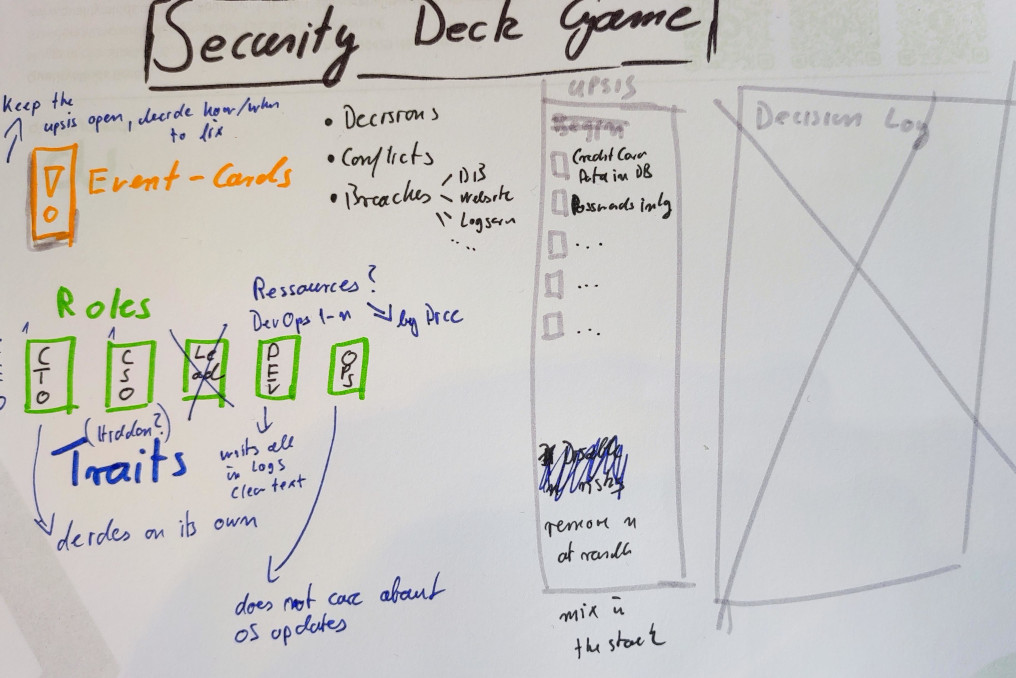 Security Deck Game
Keep the
upsis open, decide how/when
to fix
Event-Cards
• Decisions
• Conflicts
• Breaches
DB
Website
Logserv
....
Roles
Ressources?
DevOps 1-n
by Dice
CTO
CSO
Lead
DEV
OPS
(Hidden?)
Traits
decides on its own
writes all
in Logs
clear text
does not care about
OS updates
UPSIS
Credit Card
Data in DB
Passwords in log
...
...
...
remove n
at random
mix in
the stack
Decision Log